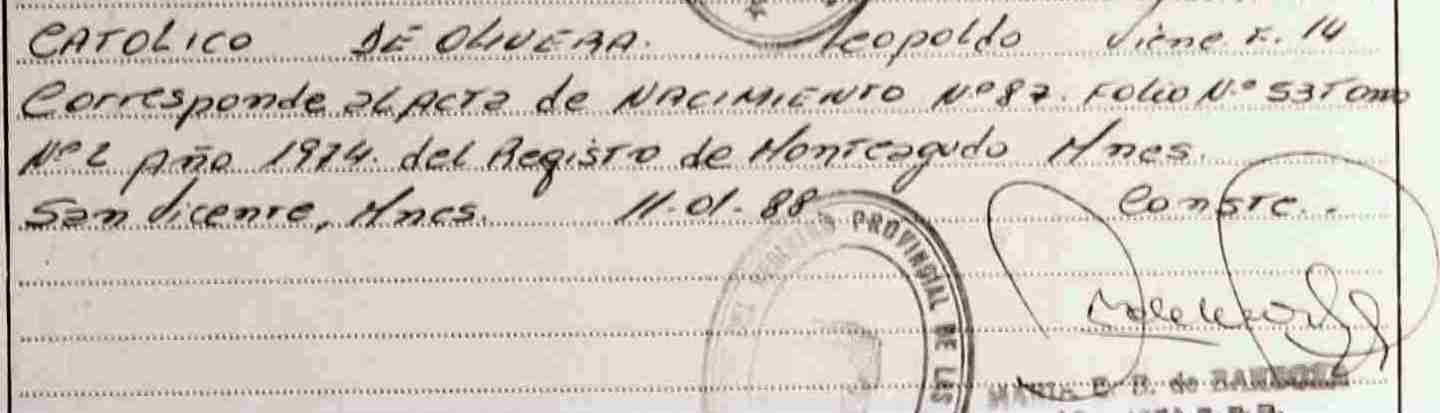 CATOLICO DE OLIVERA. Leopoldo Viene F. 14
Corresponde al Acta de NACIMIENTO Nº 87. FOLIO N.º 53 Tomo
Nº 2 Año 1974. del Registro de Monteagudo Mnes.
San Vicente, Mnes. 11-01-88 Conste..
PROVINCIAL DE LAS
MARIA E. B. de BARBOZA